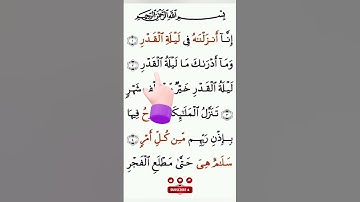 بِسْمِ اللَّهِ الرَّحْمَٰنِ الرَّحِيمِ
إِنَّآ أَنزَلْنَٰهُ فِى لَيْلَةِ ٱلْقَدْرِ ١
وَمَآ أَدْرَىٰكَ مَا لَيْلَةُ ٱلْقَدْرِ ٢
لَيْلَةُ ٱلْقَدْرِ خَيْرٌ شَهْرٍ
٣ تَنَزَّلُ ٱلْمَلَٰٓئِكَ فِيهَا
بِإِذْنِ رَبِّهِم مِّن كُلِّ أَمْرٍ ٤
سَلَٰمٌ هِىَ حَتَّىٰ مَطْلَعِ ٱلْفَجْرِ
SUBSCRIBE